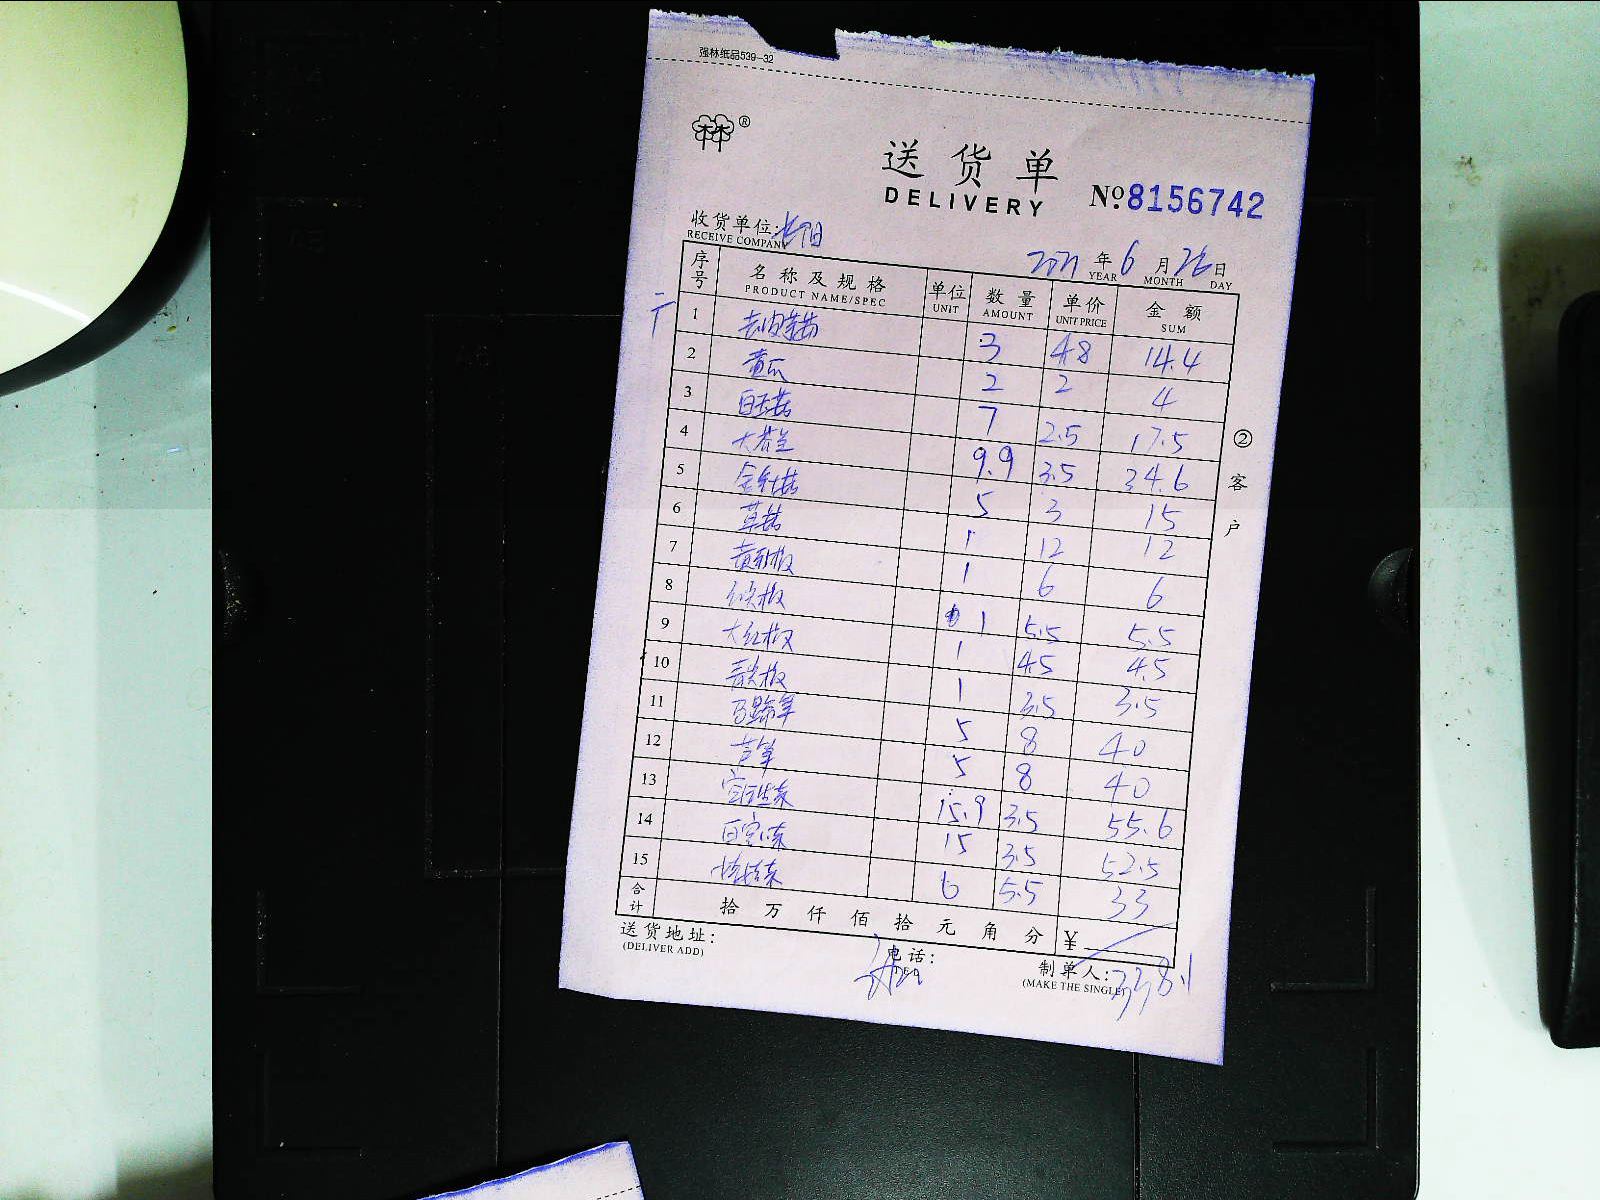 强林纸品539-32
®
送货单
DELIVERY
№8156742
收货单位:
RECEIVE COMPANY
2021年6月26日
YEAR MONTH DAY
序号 名称及规格 单位 数量 单价 金额
PRODUCT NAME/SPEC UNIT AMOUNT UNIT PRICE SUM
1 3 4.8 14.4
2 黄瓜 2 2 4
3 白玉菇 7 2.5 17.5
4 9.9 3.5 34.6
5 5 3 15
6 草菇 1 12 12
7 黄彩椒 1 6 6
8 1 5.5 5.5
9 大红椒 1 4.5 4.5
10 青尖椒 1 3.5 3.5
11 5 8 40
12 芦笋 5 8 40
13 15.9 3.5 55.6
14 15 3.5 52.5
15 6 5.5 33
合计 拾万仟佰拾元角分 ¥
338.1
②客户
送货地址:
(DELIVER ADD)
电话:
制单人:
(MAKE THE SINGLE)